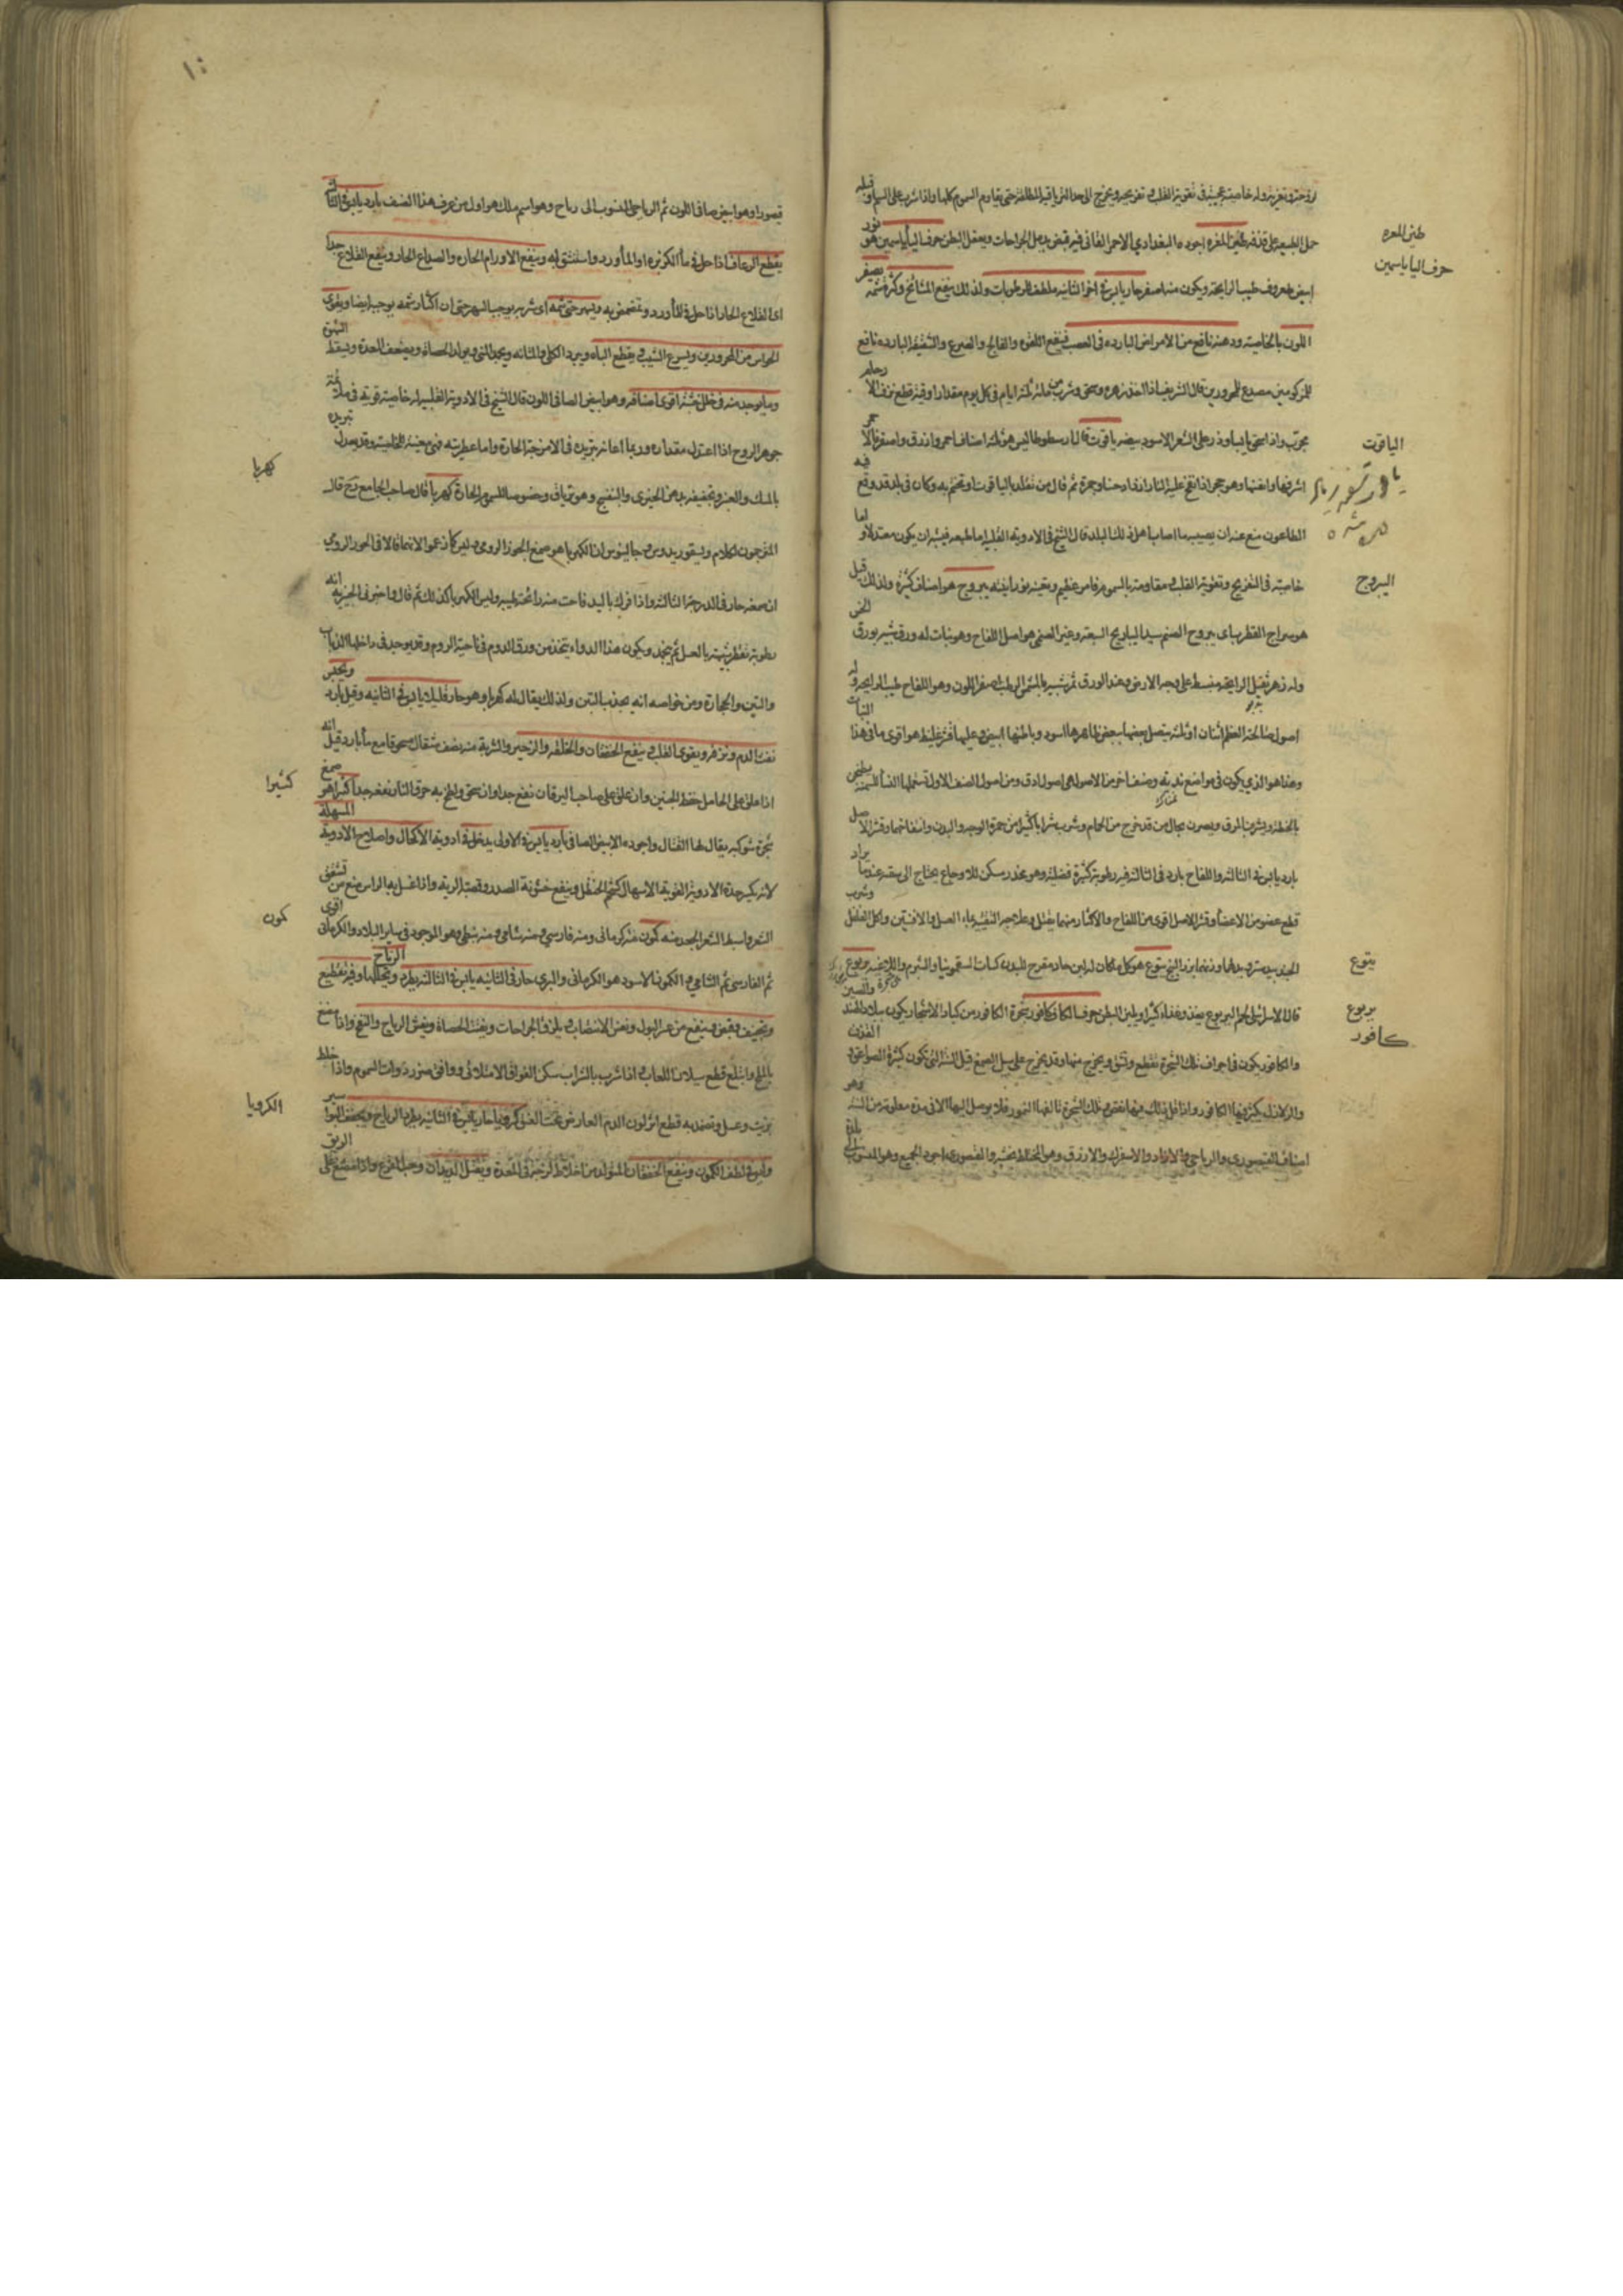 لزوجته وتغريته وله خاصية عجيبة في تقوية القلب وتفريحه ويخرج الى حد الترياقية المطلقة حتى يقاوم السموم كلها واذا شرب على السم او قبله
حمل الطبيعة على قذفه طين المغرة اجوده البغدادي الاحمر القاني فيه قبض يدمل الجراحات ويعقل البطن حرف اليا ياسمين هو نور
طين المغره
حرف اليا ياسمين
ابيض معروف طيب الرايحة ويكون منه اصفر حار يابس في اخر الثانية ملطف للرطوبات ولذلك ينفع المشائخ وكثرة شمه يصفر
اللون بالخاصية ودهنه نافع من الامراض الباردة في العصب فينفع اللقوة والفالج والصرع والشقيقة الباردة نافع
للمزكومين مصدع للمحرورين قال الشريف اذا اخذ زهره وسحق وشرب من مائه ثلثة ايام في كل يوم مقدار اوقية قطع نزف الارحام
مجرب واذا سحق يابسا وذر على الشعر الاسود بيضه ياقوت قال ارسطوطاليس هو ثلثة اصناف احمر وازرق واصفر فالاحمر
الياقوت
اشرفها وانفسها وهو حجر اذا نفخ عليه النار ازداد حسنا وحمرة ثم قال من تقلد بالياقوت او تختم به وكان في بلد قد وقع فيه
الطاعون منع عنه ان يصيبه ما اصاب اهل ذلك البلد قال الشيخ في الادوية القلبية اما طبعه فيشبه ان يكون معتدلا واما
خاصيته في التفريح وتقوية القلب ومقاومة السموم فامر عظيم يبروح هو اصناف كثيرة ولذلك قيل
اليبروح
هو سراج القطرب اي يبروح الصنم سيد اليباريح السبعة وعنبر الصنمي هو اصل اللفاح وهو نبات له ورق شبيه بورق الخس
وله زهر ثقيل الرايحة منبسط على وجه الارض وعند الورق ثمر شبيه بالمشمش الرطب اصفر اللون وهو اللفاح طيب الرايحة وله
اصول صالحة العظم اثنان او ثلثة يتصل بعضها ببعض ظاهرها اسود وباطنها ابيض وعليها قشر غليظ هو اقوى ما في هذا النبات
وهذا هو الذي يكون في مواضع ندية وصنف اخر من الاصول هي اصول ادق ومن اصول الصنف الاول تستعملها النسا للسمنة يطبخن
بالحنطة ويشربن المرق ويصرن بحال من قد خرج من الحمام وشرب شرابا كثيرا من حمرة الوجه والبدن وانتفاخهما وقشر الاصل
بارد يابس في الثالثة واللفاح بارد في الثالثة فيه رطوبة كثيرة فضلية وهو مخدر مسكن للاوجاع يحتاج الى سقيه عندما يراد
قطع عضو من الاعضا وقشر الاصل اقوى من اللفاح والاكثار منهما يقتل وعلاجه التقيية بماء العسل والافسنتين واكل الفلفل وشرب
يتوع هو كل ما كان له لبن حاد مقرح للبدن كنبات السقمونيا والشبرم واللاعية يربوع
يتوع
قال الاسرائيلي لحم اليربوع يغذو غذاء كثيرا ويلين البطن حرف الكاف كافور شجرة الكافور من كبار الاشجار يكون ببلاد الهند والصين
يربوع
كافور
والكافور يكون في اجواف تلك الشجرة تقطع وتشق ويخرج منها وقد يخرج على سبيل الصمغ قيل السنة التي تكون كثيرة الصواعق
والزلازل يكثر فيها الكافور واذا قل ذلك فيها نقص وتلك الشجرة تالفها النمور فلا يوصل اليها الا في مدة معلومة من السنة وهو
اصناف القيصوري والرياحي والازاد والاسفرك والازرق وهو المختلط بخشبه والقيصوري اجود الجميع وهو المنسوب الى بلدة
قيصور وهو ابيض صافي اللون ثم الرياحي المنسوب الى رباح وهو اسم ملك هو اول من عرف هذا الصنف بارد يابس في الثالثة
يقطع الرعاف اذا حل في ماء الكزبرة او الماورد واستنشق به وينفع الاورام الحارة والصداع الحار وينفع القلاع جدا
اي القلاع الحار اذا حل في الماورد وتمضمض به ويسهر حتى شمه اي شربه يوجب السهر حتى ان اكثار شمه يوجبه ايضا ويقوى
الحواس من المحرورين ويسرع الشيب ويقطع الباه ويبرد الكلى والمثانة ويجمد المنى ويولد الحصاة ويضعف المعدة ويسقط الشهوة
وما يوجد منه في خلل خشبه اقوى اصنافه وهو ابيض الصافي اللون قال الشيخ في الادوية القلبية له خاصية قوية في ملائمة
جوهر الروح اذا اعتدل مقداره وربما اعانه تبريده في الامزجة الحارة واما عطريته فهي معينة للخاصية وقد يعدل تبريده
بالمسك والعنبر وتجفيفه بدهن الخيرى والبنفسج وهو ترياق وخصوصا للسموم الحارة كهربا قال صاحب الجامع ديح قال
كهربا
المترجمون لكلام ديسقوريدوس وجالينوس ان الكهربا هو صمغ الحور الرومي وليس كما زعموا لانهما قالا في الحور الرومي
ان صمغه حار في الدرجة الثالثة واذا فرك باليد فاحت منه رائحة طيبة وليس الكهربا كذلك ثم قال انه
رطوبة تقطر شبيهة بالعسل ثم يجمد ويكون هذا الدواء يتخذ من ورق الدوم في ناحية الروم وقد يوجد في داخله الذباب
والتبن والحجارة ومن خواصه انه يجذب التبن ولذلك يقال له كهربا وهو حار قليلا يابس في الثانية وقيل بارد ويحبس
نفث الدم ونزفه ويقوى القلب وينفع الخفقان والخلفة والزحير والشربة منه نصف مثقال مسحوقا مع ماء بارد قيل انه
اذا علق على الحامل حفظ الجنين وان علق على صاحب اليرقان نفع جدا وان سحق ولطخ به حرق النار نفعه جدا كثيرا هو صمغ
كثيرا
شجرة شوكية يقال لها القتاد واجوده الابيض الصافي بارد يابس في الاولى يدخل في ادوية الاكحال واصلاح الادوية المسهلة
لانه يكسر حدة الادوية القوية الاسهال كشحم الحنظل وينفع خشونة الصدر وقصبة الرية واذا غسل به الراس منع من تشقق
الشعر وابسط الشعر الجعد منه كمون منه كرماني ومنه فارسي ومنه شامي ومنه نبطي وهو الموجود في ساير البلاد والكرماني اقوى
كمون
ثم الفارسي ثم الشامي والكمون الاسود هو الكرماني والبري حار في الثانية يابس في الثالثة يطرد الرياح ويحللها وفيه تقطيع
وتجفيف وقبض وينفع من عسر البول ونفس الانتصاب ويلزق الجراحات ويفتت الحصاة ويفش الرياح والنفخ واذا مضغ
بالملح وابتلع قطع سيلان اللعاب واذا شرب بالشراب سكن الفواق الامتلائي ووافق ضرر ذوات السموم واذا خلط
بزيت وعسل وتضمد به قطع اثر لون الدم العارض تحت العين كرويا حار يابس في الثانية يطرد الرياح ويجفف
الكرويا
وليس في لطف الكمون وينفع الخفقان المتولد من اخلاط لزجة في المعدة ويقتل الديدان وحب القرع واذا مضغ على الريق